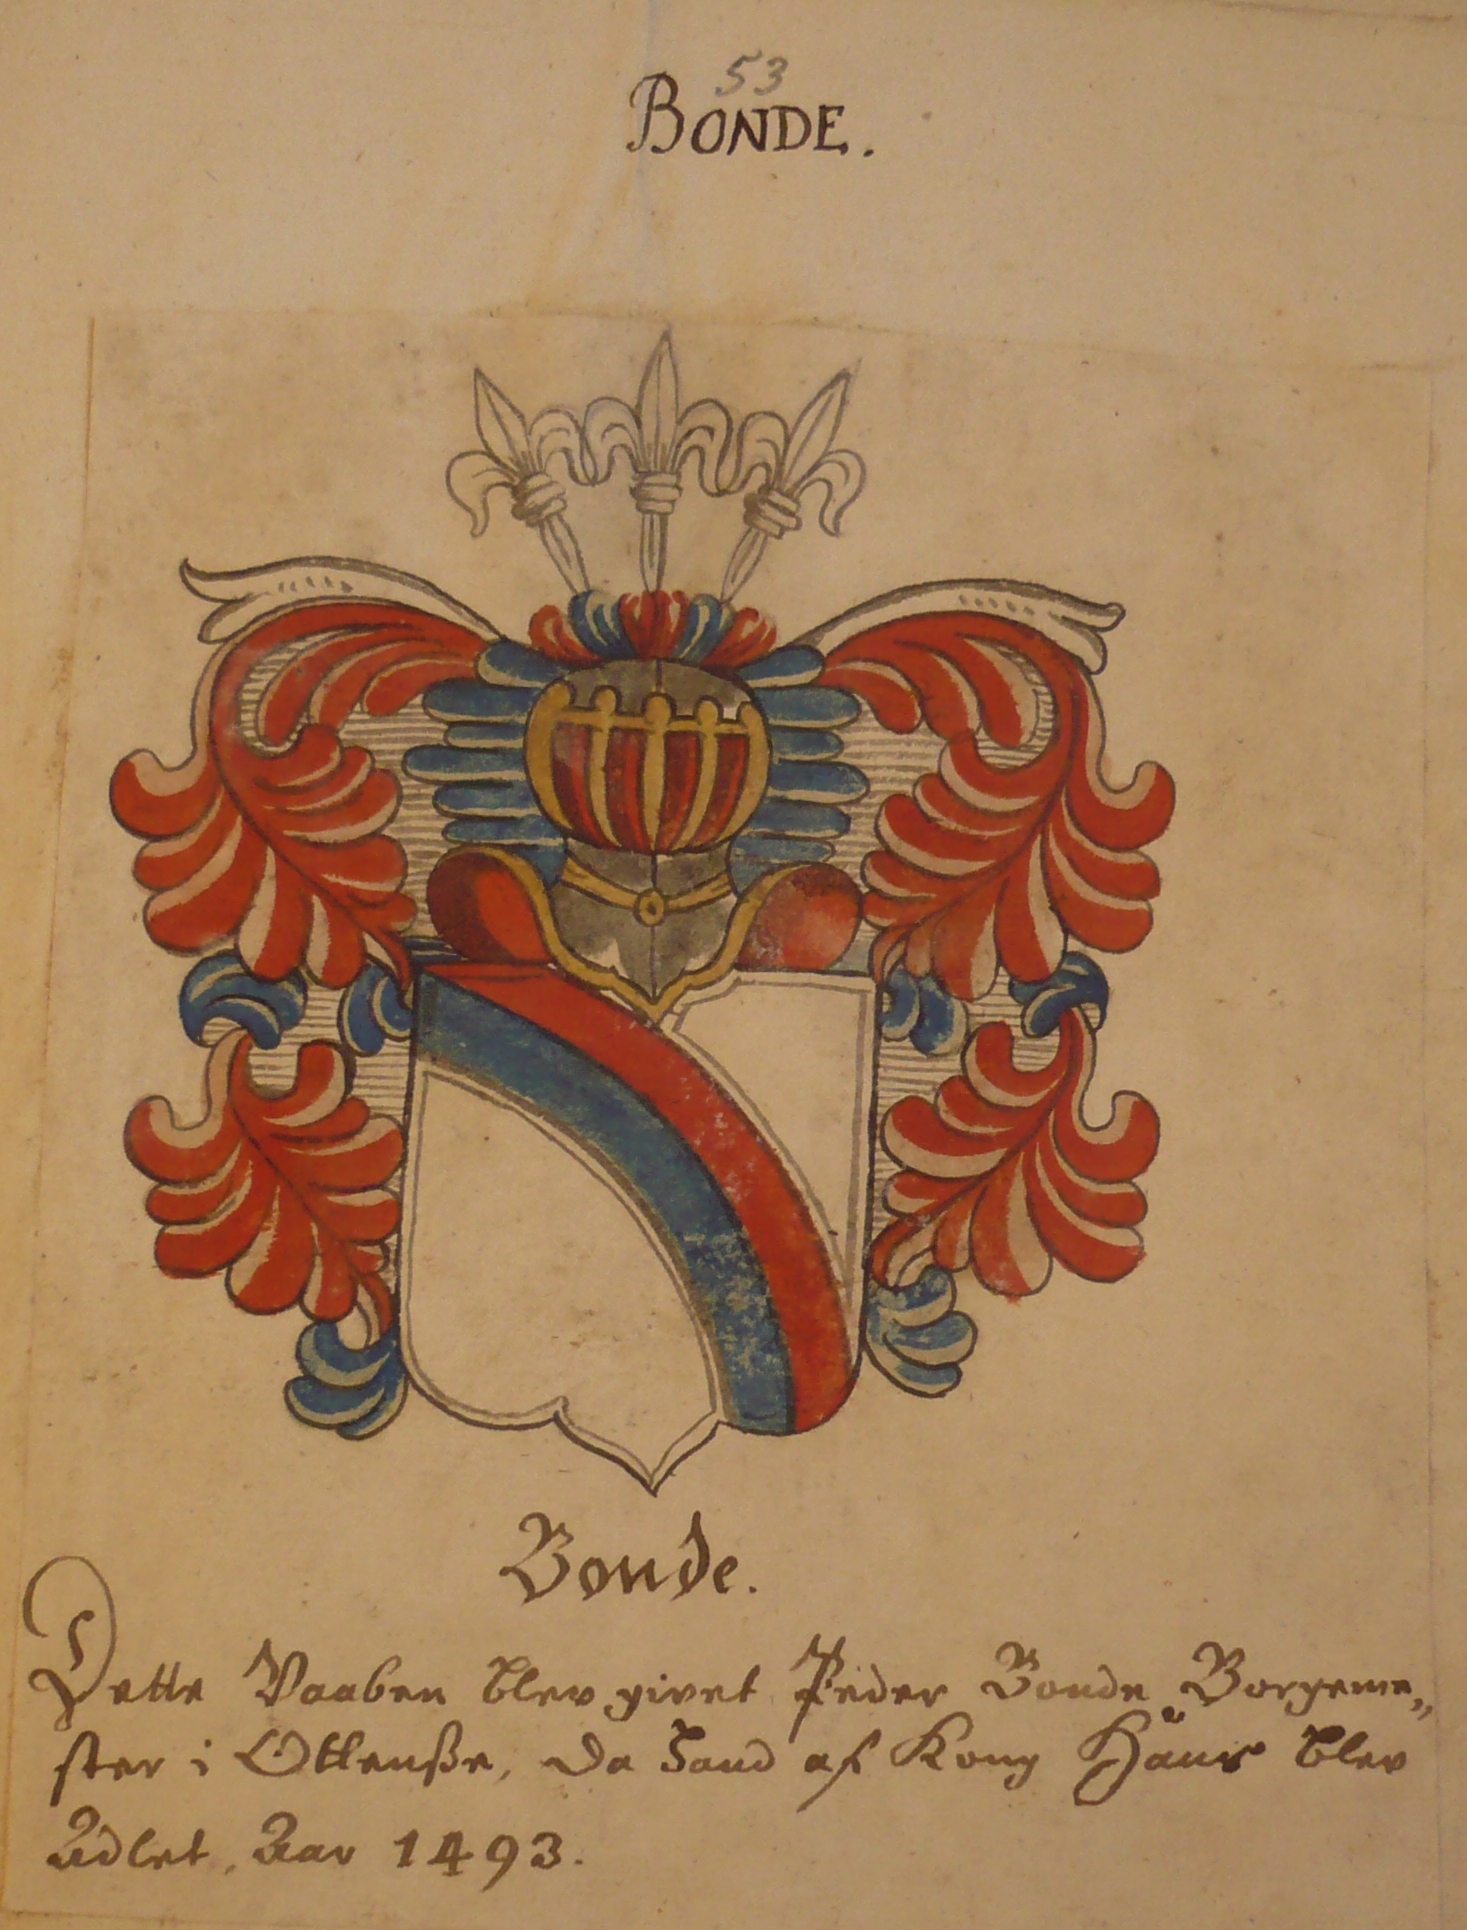 53
BONDE.
Bonde.
Dette Vaaben blev givet Peder Bonde Borgeme„
ster i Ottensße, da hand af Kong Hans blev
Adlet, Aar 1493.